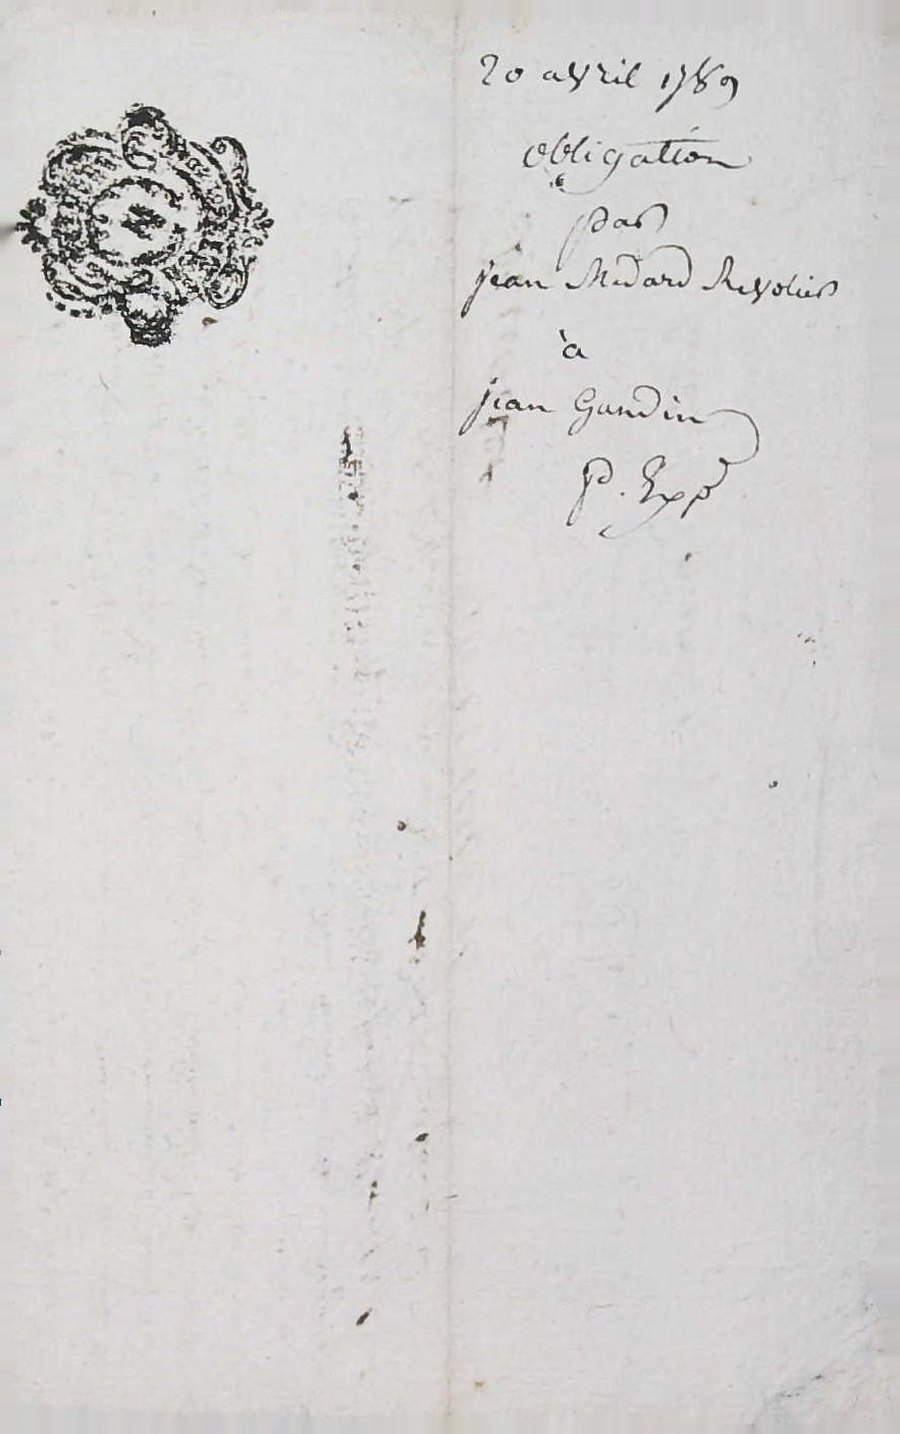 20 avril 1789
obligation
par
jean Medard Revolier
à
jean Gandin
P. Exp